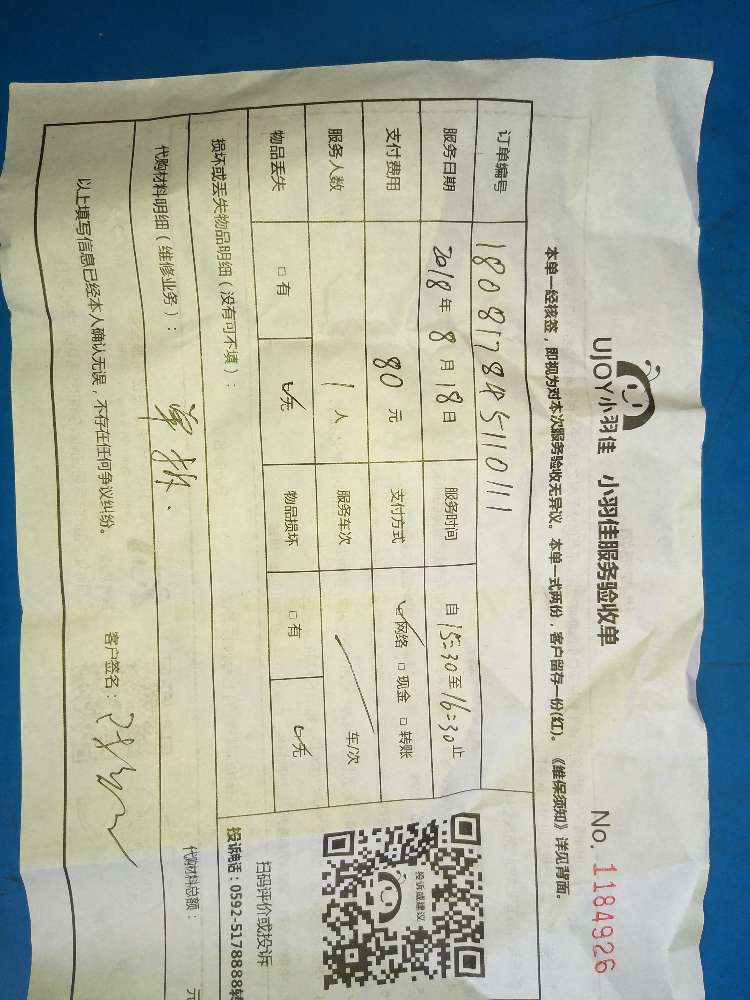 UJOY小羽佳 小羽佳服务验收单
No. 1184926
本单一经核签，即视为对本次服务验收无异议。本单一式两份，客户留存一份(红)。《维保须知》详见背面。
订单编号 180817845110111
服务日期 2018年8月18日 服务时间 自15:30至16:30止
支付费用 80元 支付方式 ☑网络 □现金 □转账
服务人数 1人 服务车次 车/次
物品丢失 □有 ☑无 物品损坏 □有 ☑无
投诉或建议
扫码评价或投诉
投诉电话：0592-5178888转
损坏或丢失物品明细（没有可不填）：
代购材料明细（维修业务）：
代购材料总额： 元
以上填写信息已经本人确认无误，不存在任何争议纠纷。
客户签名：